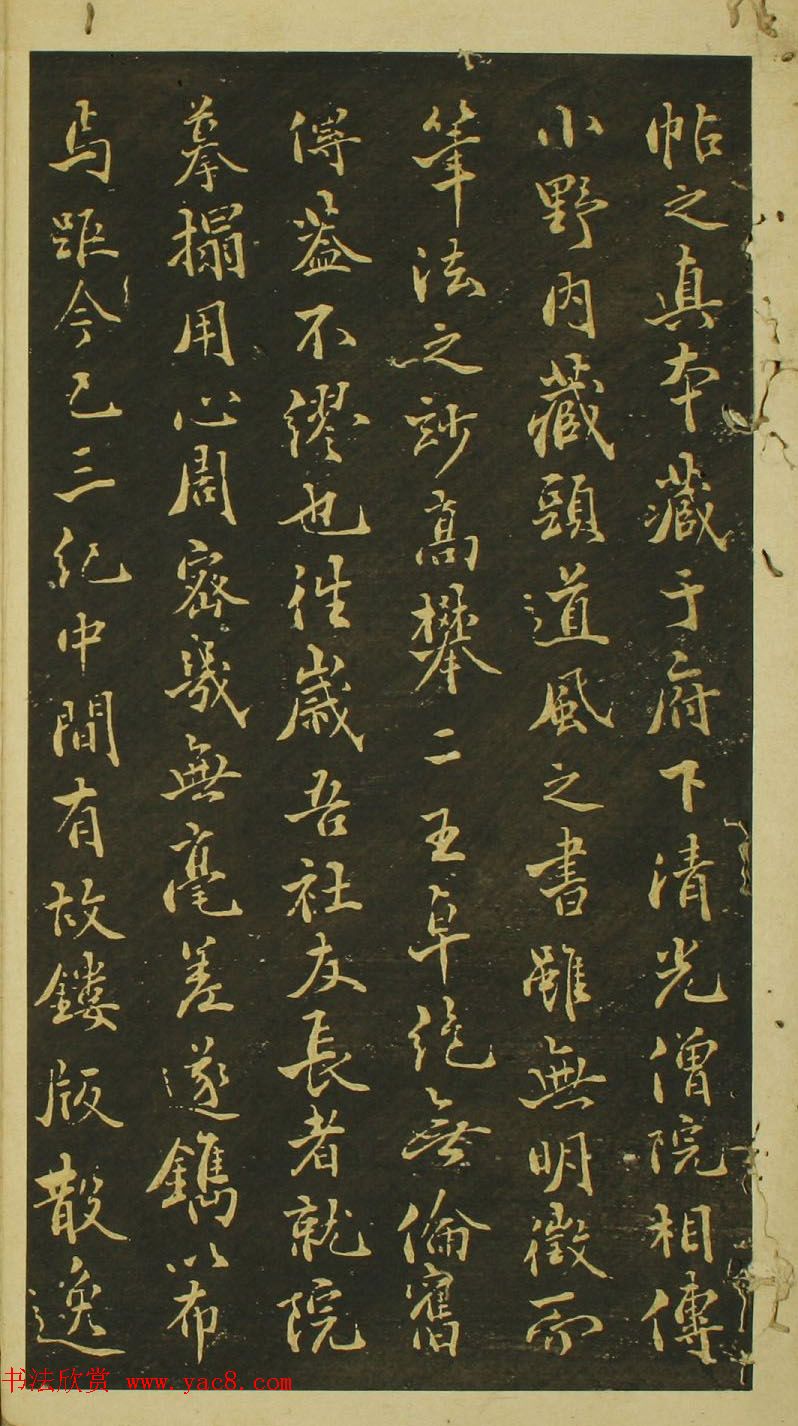 帖之真本藏于府下清光僧院相傳
小野内藏頭道風之書雖無明徵而
筆法之妙高攀二王卓絶無倫舊
傳蓋不繆也往歲吾社友長者就院
摹搨用心周密幾無毫差遂鐫以布
焉距今已三紀中間有故鏤版散逸
书法欣赏 www.yac8.com